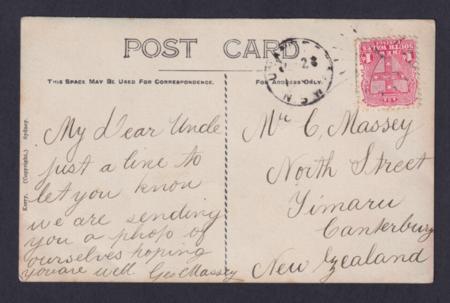 POST CARD
THIS SPACE MAY BE USED FOR CORRESPONDENCE.
FOR ADDRESS ONLY.
Kerry. (Copyright.) Sydney.
My Dear Uncle
just a line to
let you know
we are sending
you a photo of
ourselves hoping
you are well Geo Massey
Mr C. Massey
North Street
Timaru
Canterbury
New Zealand
23
N.S.W
SOUTH WALES